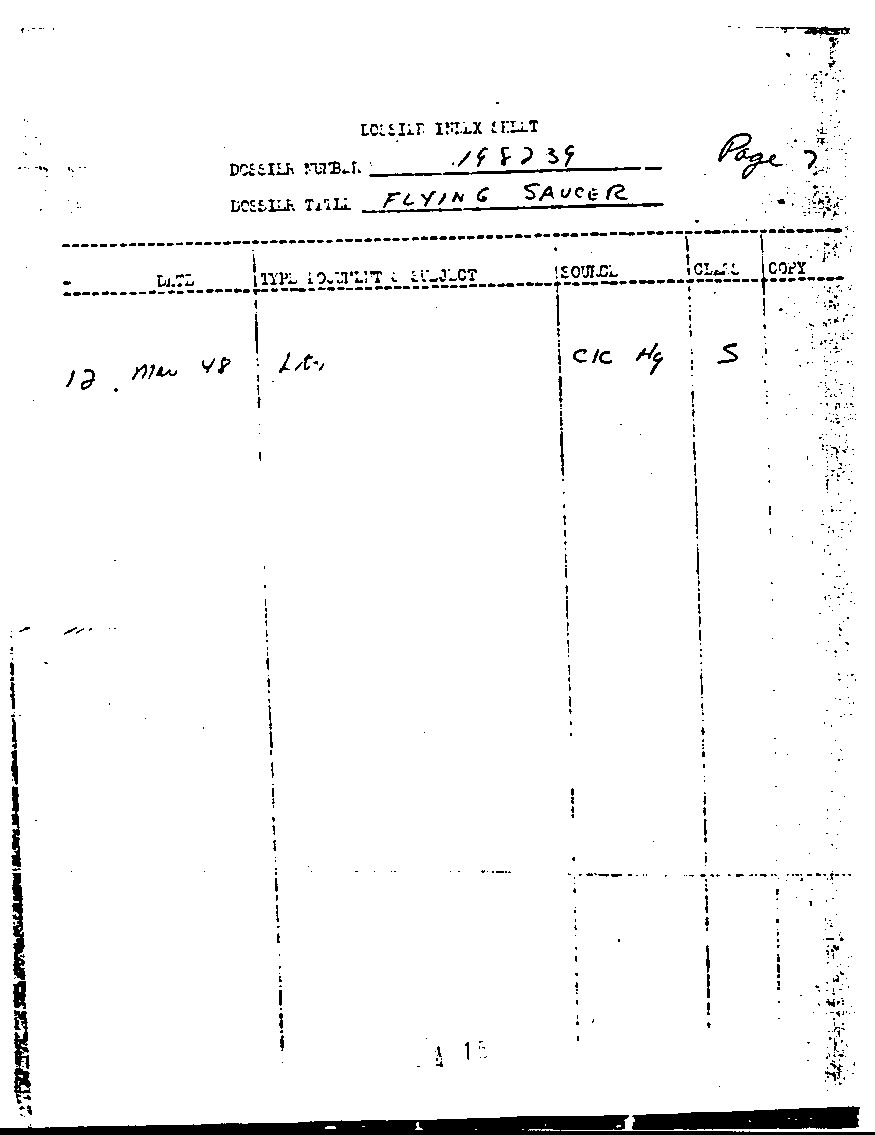 DOSSIER INDEX SHEET
DOSSIER NUMBER 198239 Page
DOSSIER TITLE FLYING SAUCER
DATE TYPE DOCUMENT & SUBJECT SOURCE CLASS COPY
12 Mar 48 Ltr, CIC Hq S
A 15